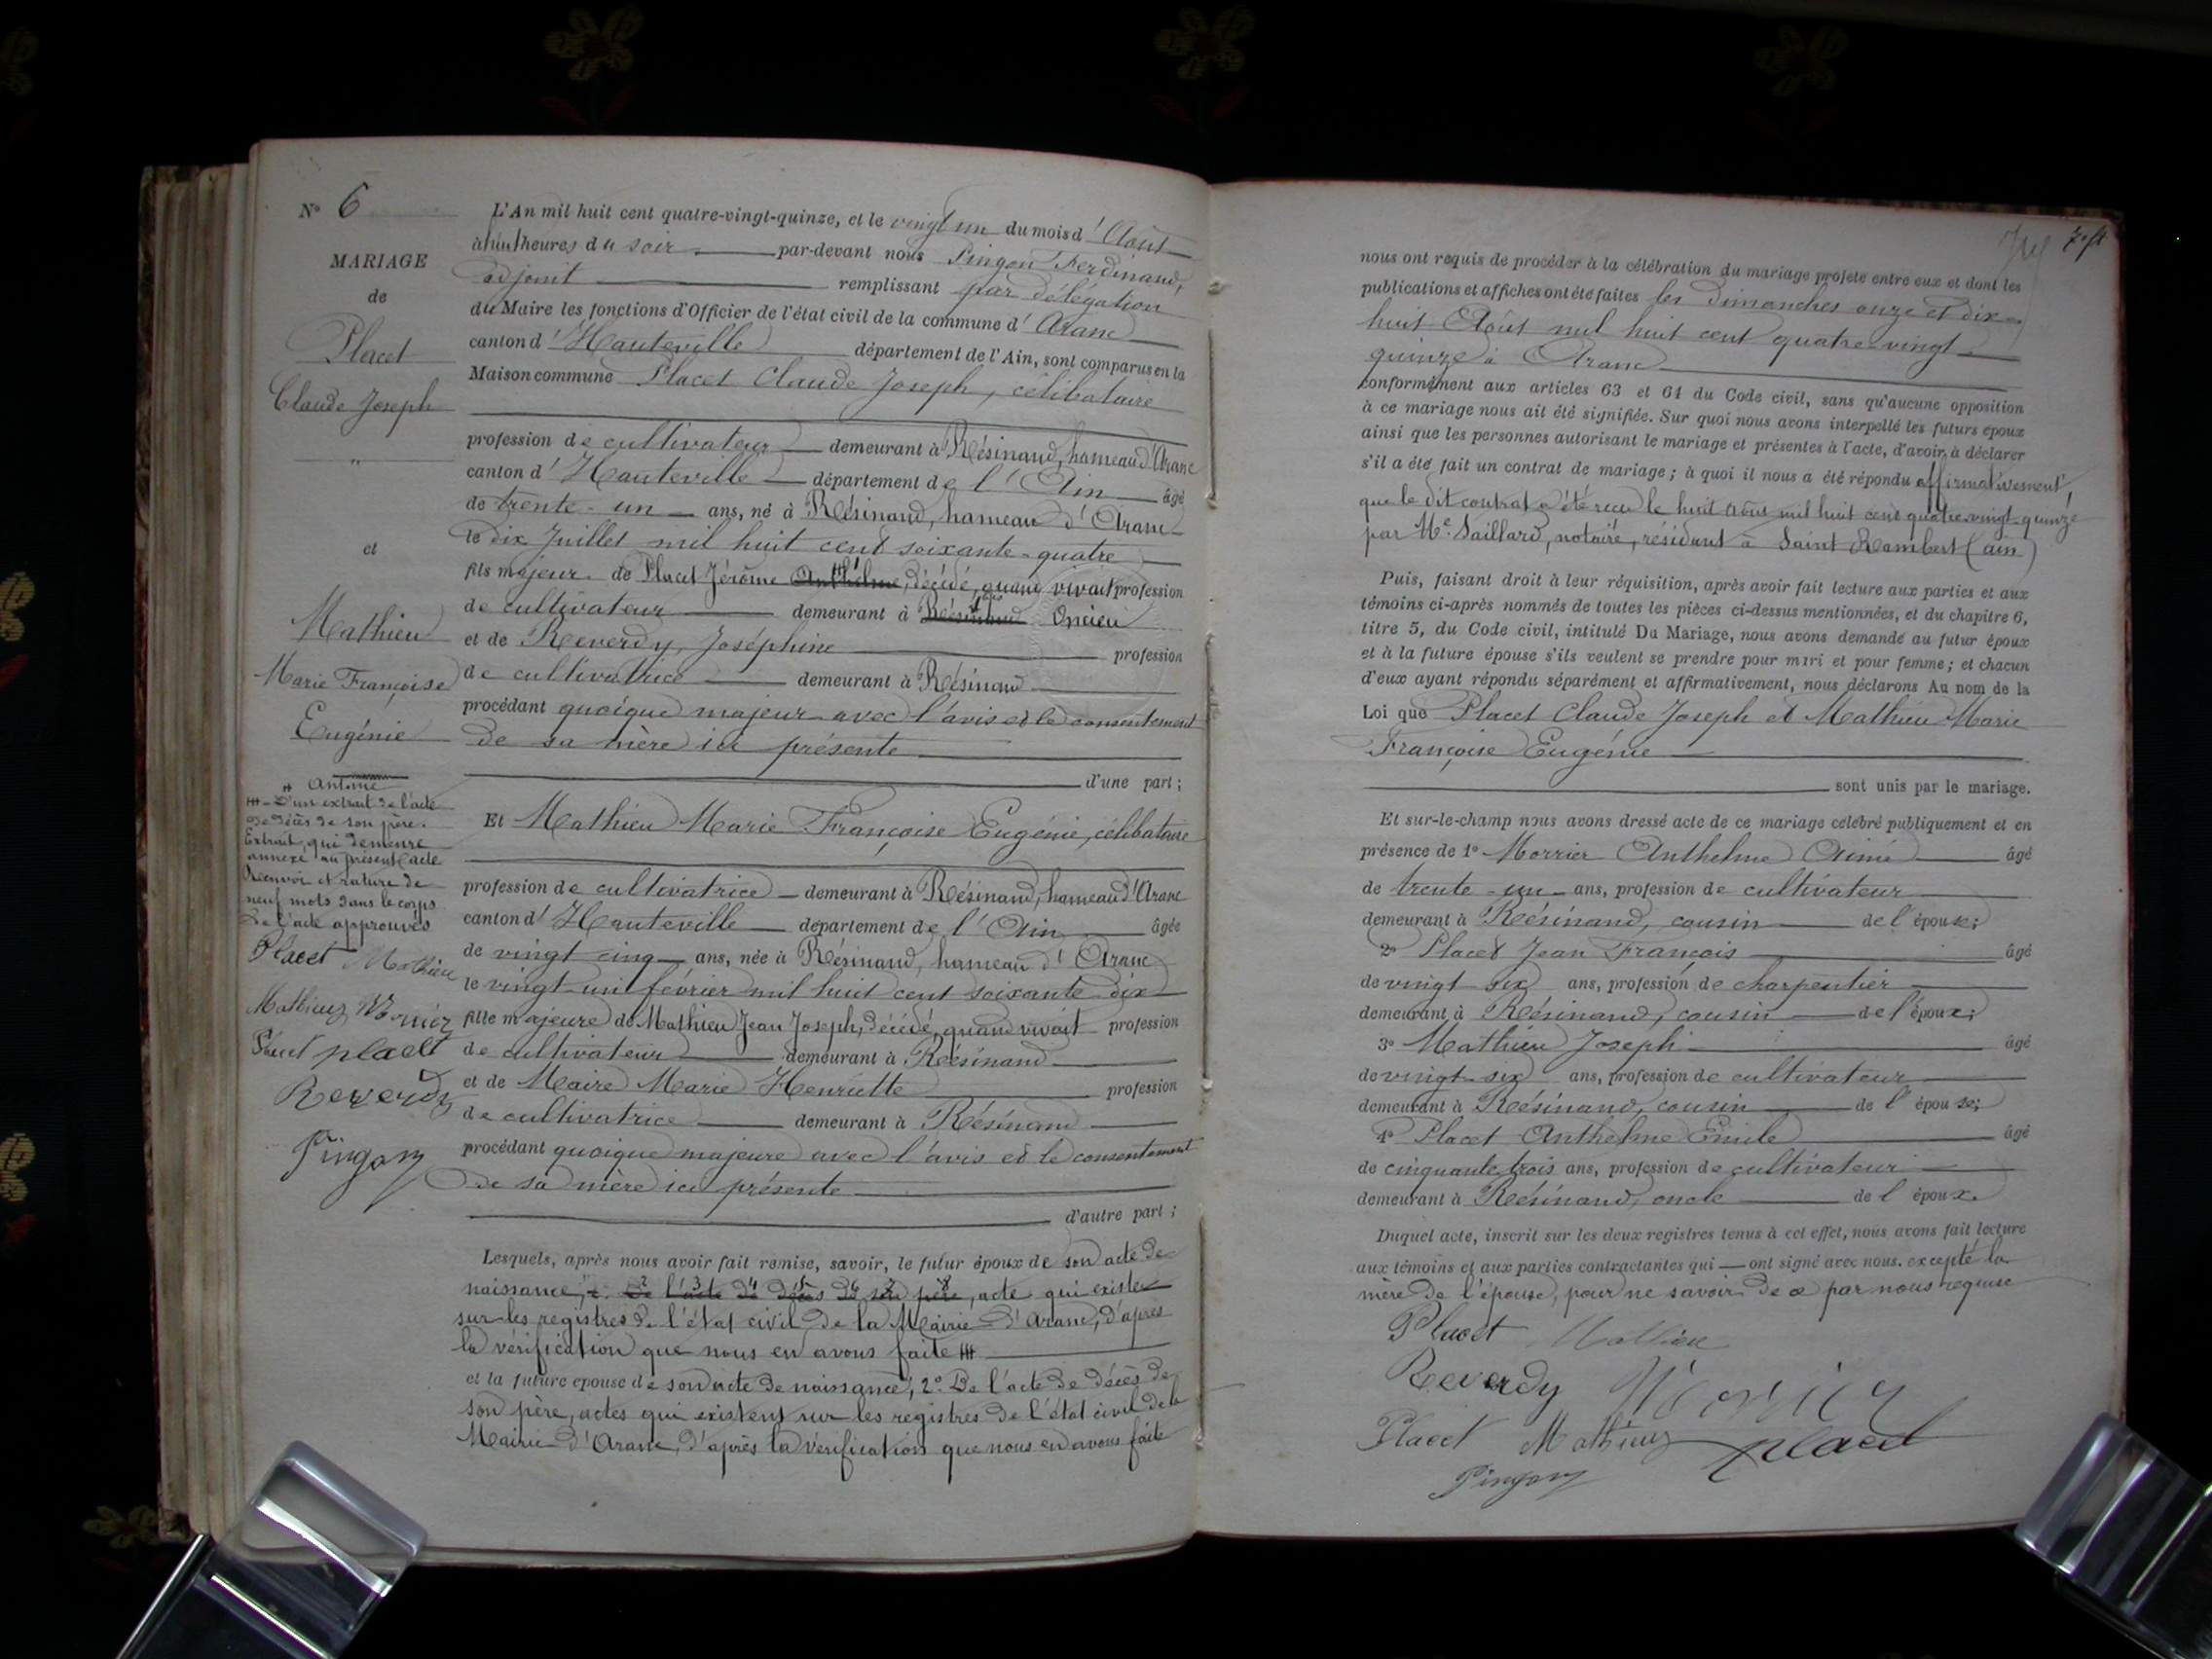 N° 6
MARIAGE
de
Placet
Claude Joseph
"
et
Mathieu
Marie Françoise
Eugénie
# Antoine
## - D'un extrait de l'acte
de décès de son père.
Extrait, qui demeure
annexé au présent acte
Renvoi et rature de
neuf mots dans le corps
de l'acte approuvés
Placet Mathieu
Mathieu Morrier
Placet placet
Reverdy
Pingon
L'An mil huit cent quatre-vingt-quinze, et le vingt un du mois d'Août
à huit heures du soir par-devant nous Pingon Ferdinand,
adjoint remplissant par délégation
du Maire les fonctions d'Officier de l'état civil de la commune d'Aranc
canton d'Hauteville département de l'Ain, sont comparus en la
Maison commune Placet Claude Joseph, célibataire
profession de cultivateur demeurant à Résinand, hameau d'Aranc
canton d'Hauteville département de l'Ain âgé
de trente-un ans, né à Résinand, hameau d'Aranc
le dix Juillet mil huit cent soixante-quatre
fils majeur de Placet Jérôme Anthelme, décédé, quand vivait profession
de cultivateur demeurant à Résinand Oncieu
et de Reverdy, Joséphine profession
de cultivatrice demeurant à Résinand
procédant quoique majeur avec l'avis et le consentement
de sa mère ici présente
d'une part;
Et Mathieu Marie Françoise Eugénie, célibataire
profession de cultivatrice demeurant à Résinand, hameau d'Aranc
canton d'Hauteville département de l'Ain âgée
de vingt cinq ans, née à Résinand, hameau d'Aranc
le vingt-un février mil huit cent soixante dix
fille majeure de Mathieu Jean Joseph, décédé, quand vivait profession
de cultivateur demeurant à Résinand
et de Maire Marie Henriette profession
de cultivatrice demeurant à Résinand
procédant quoique majeure avec l'avis et le consentement
de sa mère ici présente
d'autre part;
Lesquels, après nous avoir fait remise, savoir, le futur époux de son acte de
naissance, 2° De l'acte de décès de son père, acte qui existe
sur les registres de l'état civil de la Mairie d'Aranc, d'après
la vérification que nous en avons faite ##
et la future épouse de son acte de naissance, 2° De l'acte de décès de
son père, actes qui existent sur les registres de l'état civil de la
Mairie d'Aranc, d'après la vérification que nous en avons faite
nous ont requis de procéder à la célébration du mariage projeté entre eux et dont les
publications et affiches ont été faites les dimanches onze et dix-
huit Août mil huit cent quatre-vingt-
quinze à Aranc
conformément aux articles 63 et 64 du Code civil, sans qu'aucune opposition
à ce mariage nous ait été signifiée. Sur quoi nous avons interpellé les futurs époux
ainsi que les personnes autorisant le mariage et présentes à l'acte, d'avoir à déclarer
s'il a été fait un contrat de mariage; à quoi il nous a été répondu affirmativement,
que le dit contrat a été reçu le huit Août mil huit cent quatre-vingt-quinze
par Me Saillard, notaire, résidant à Saint Rambert (Ain)
Puis, faisant droit à leur réquisition, après avoir fait lecture aux parties et aux
témoins ci-après nommés de toutes les pièces ci-dessus mentionnées, et du chapitre 6,
titre 5, du Code civil, intitulé Du Mariage, nous avons demandé au futur époux
et à la future épouse s'ils veulent se prendre pour mari et pour femme; et chacun
d'eux ayant répondu séparément et affirmativement, nous déclarons Au nom de la
Loi que Placet Claude Joseph et Mathieu Marie
Françoise Eugénie
sont unis par le mariage.
Et sur-le-champ nous avons dressé acte de ce mariage célébré publiquement et en
présence de 1° Morrier Anthelme Aimé âgé
de trente-un ans, profession de cultivateur
demeurant à Résinand, cousin de l'épouse;
2° Placet Jean François âgé
de vingt six ans, profession de charpentier
demeurant à Résinand, cousin de l'époux;
3° Mathieu Joseph âgé
de vingt-six ans, profession de cultivateur
demeurant à Résinand, cousin de l'épouse;
4° Placet Anthelme Emile âgé
de cinquante trois ans, profession de cultivateur
demeurant à Résinand, oncle de l'époux.
Duquel acte, inscrit sur les deux registres tenus à cet effet, nous avons fait lecture
aux témoins et aux parties contractantes qui ont signé avec nous. excepté la
mère de l'épouse, pour ne savoir, de ce par nous requise
Placet Mathieu
Reverdy Morrier
Placet Mathieu placet
Pingon